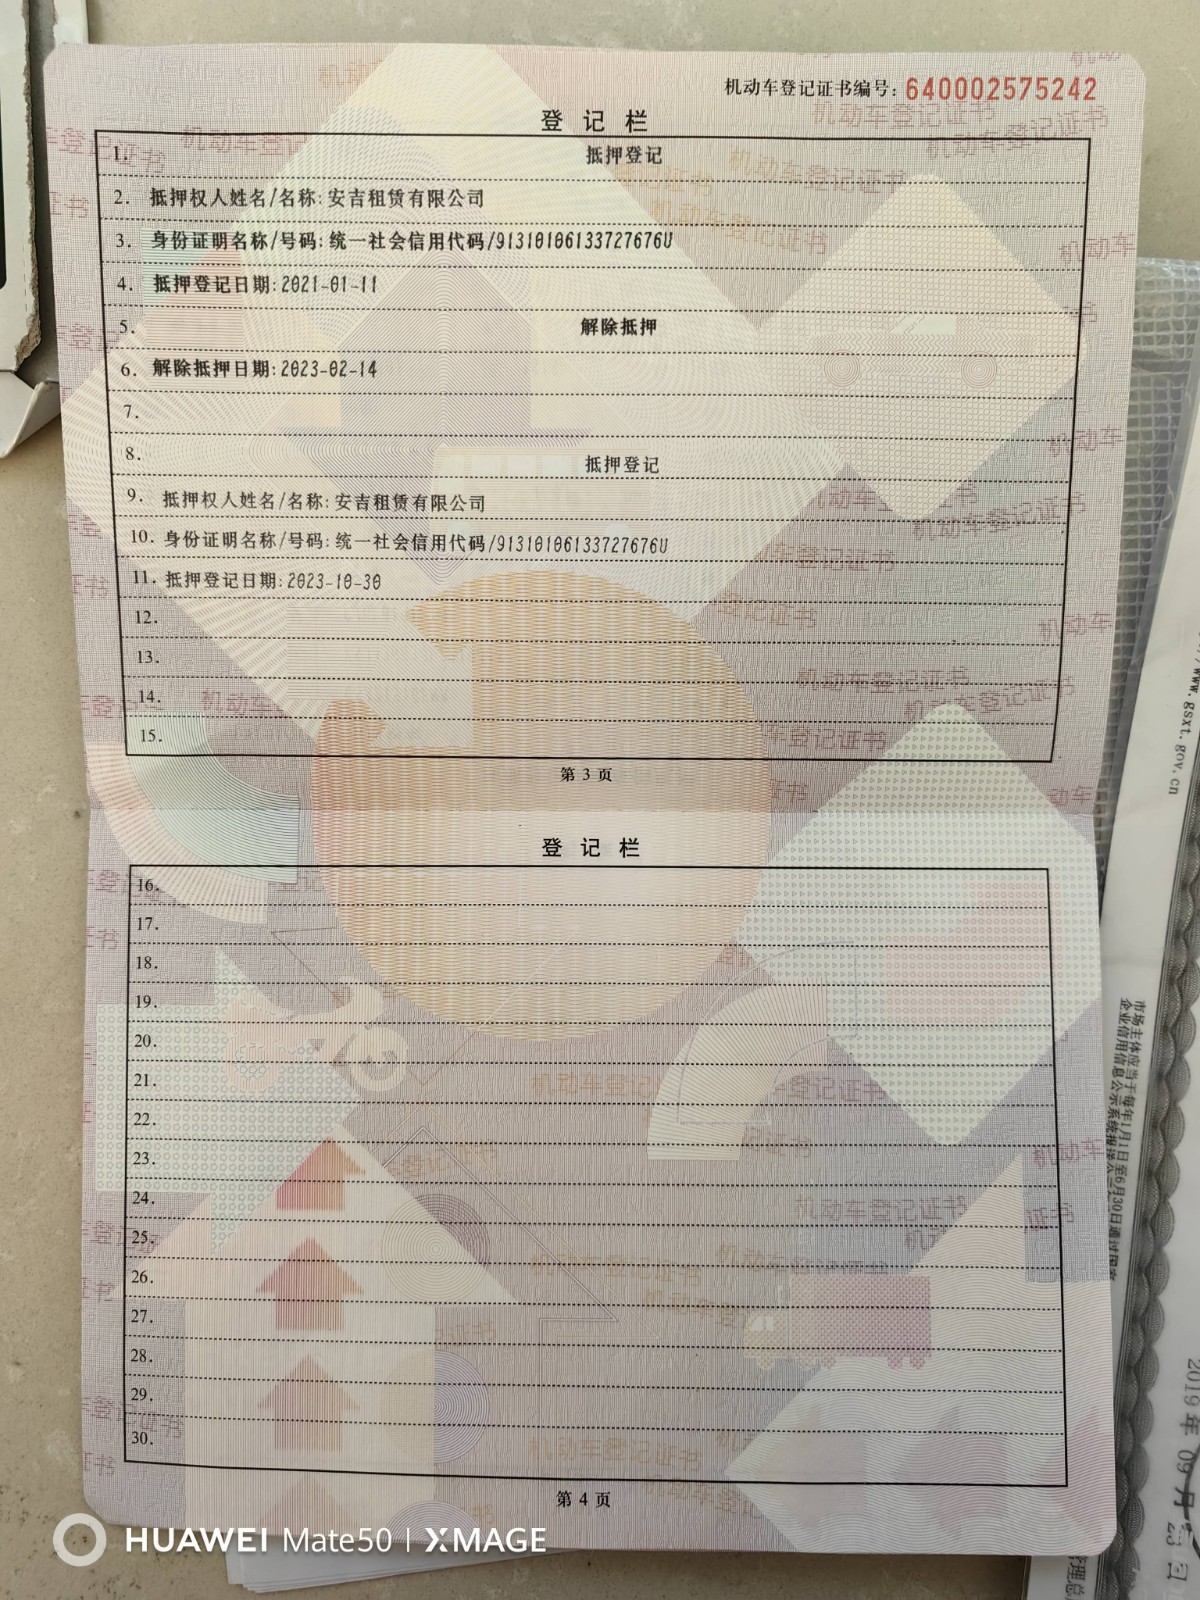 机动车登记证书编号: 640002575242
登 记 栏
1. 抵押登记
2. 抵押权人姓名/名称: 安吉租赁有限公司
3. 身份证明名称/号码: 统一社会信用代码/91310106133727676U
4. 抵押登记日期: 2021-01-11
5. 解除抵押
6. 解除抵押日期: 2023-02-14
7.
8. 抵押登记
9. 抵押权人姓名/名称: 安吉租赁有限公司
10. 身份证明名称/号码: 统一社会信用代码/91310106133727676U
11. 抵押登记日期: 2023-10-30
12.
13.
14.
15.
第 3 页
登 记 栏
16.
17.
18.
19.
20.
21.
22.
23.
24.
25.
26.
27.
28.
29.
30.
第 4 页
www.gsxt.gov.cn
市场主体应当于每年1月1日至6月30日通过国家
企业信用信息公示系统
2019 年 09 月 23 日
HUAWEI Mate50 | XMAGE